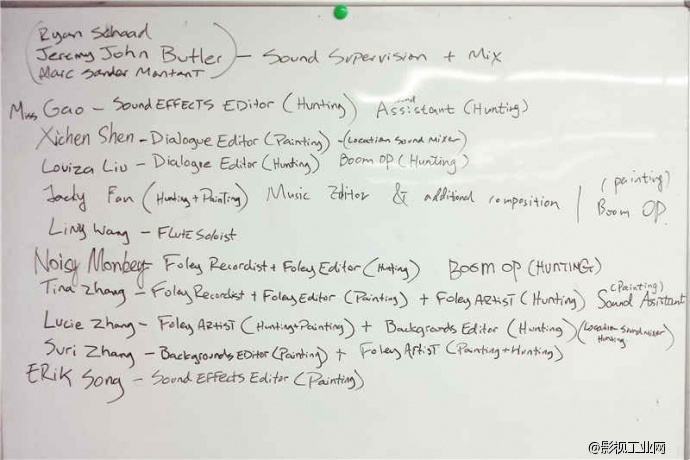 Ryan Schaad
Jeremy John Butler - Sound Supervision + Mix
Marc Sander Montant
Miss Gao - Sound EFFECTS EDitor (Hunting) Sound Assistant (Hunting)
Xichen Shen - Dialogue Editor (Painting) - (Location Sound Mixer)
Louiza Liu - Dialogue Editor (Hunting) Boom OP (Hunting)
Jacky Fan (Hunting + Painting) Music Editor & additional composition / (painting) Boom OP.
Ling Wang - FLUTE Soloist
Noisy Monkey - Foley Recordist + Foley Editor (Hunting) Boom op (HUNTING)
Tina Zhang - Foley Recordist + Foley Editor (Painting) + Foley ARTIST (Hunting) Sound Assistant (Painting)
Lucie Zhang - Foley ARTIST (Hunting + Painting) + Backgrounds Editor (Hunting) (Location Sound Mixer Hunting)
Suri Zhang - Backgrounds EDitor (Painting) + Foley ARTIST (Painting + Hunting)
ERiK Song - Sound EFFects Editor (Painting)
@影视工业网